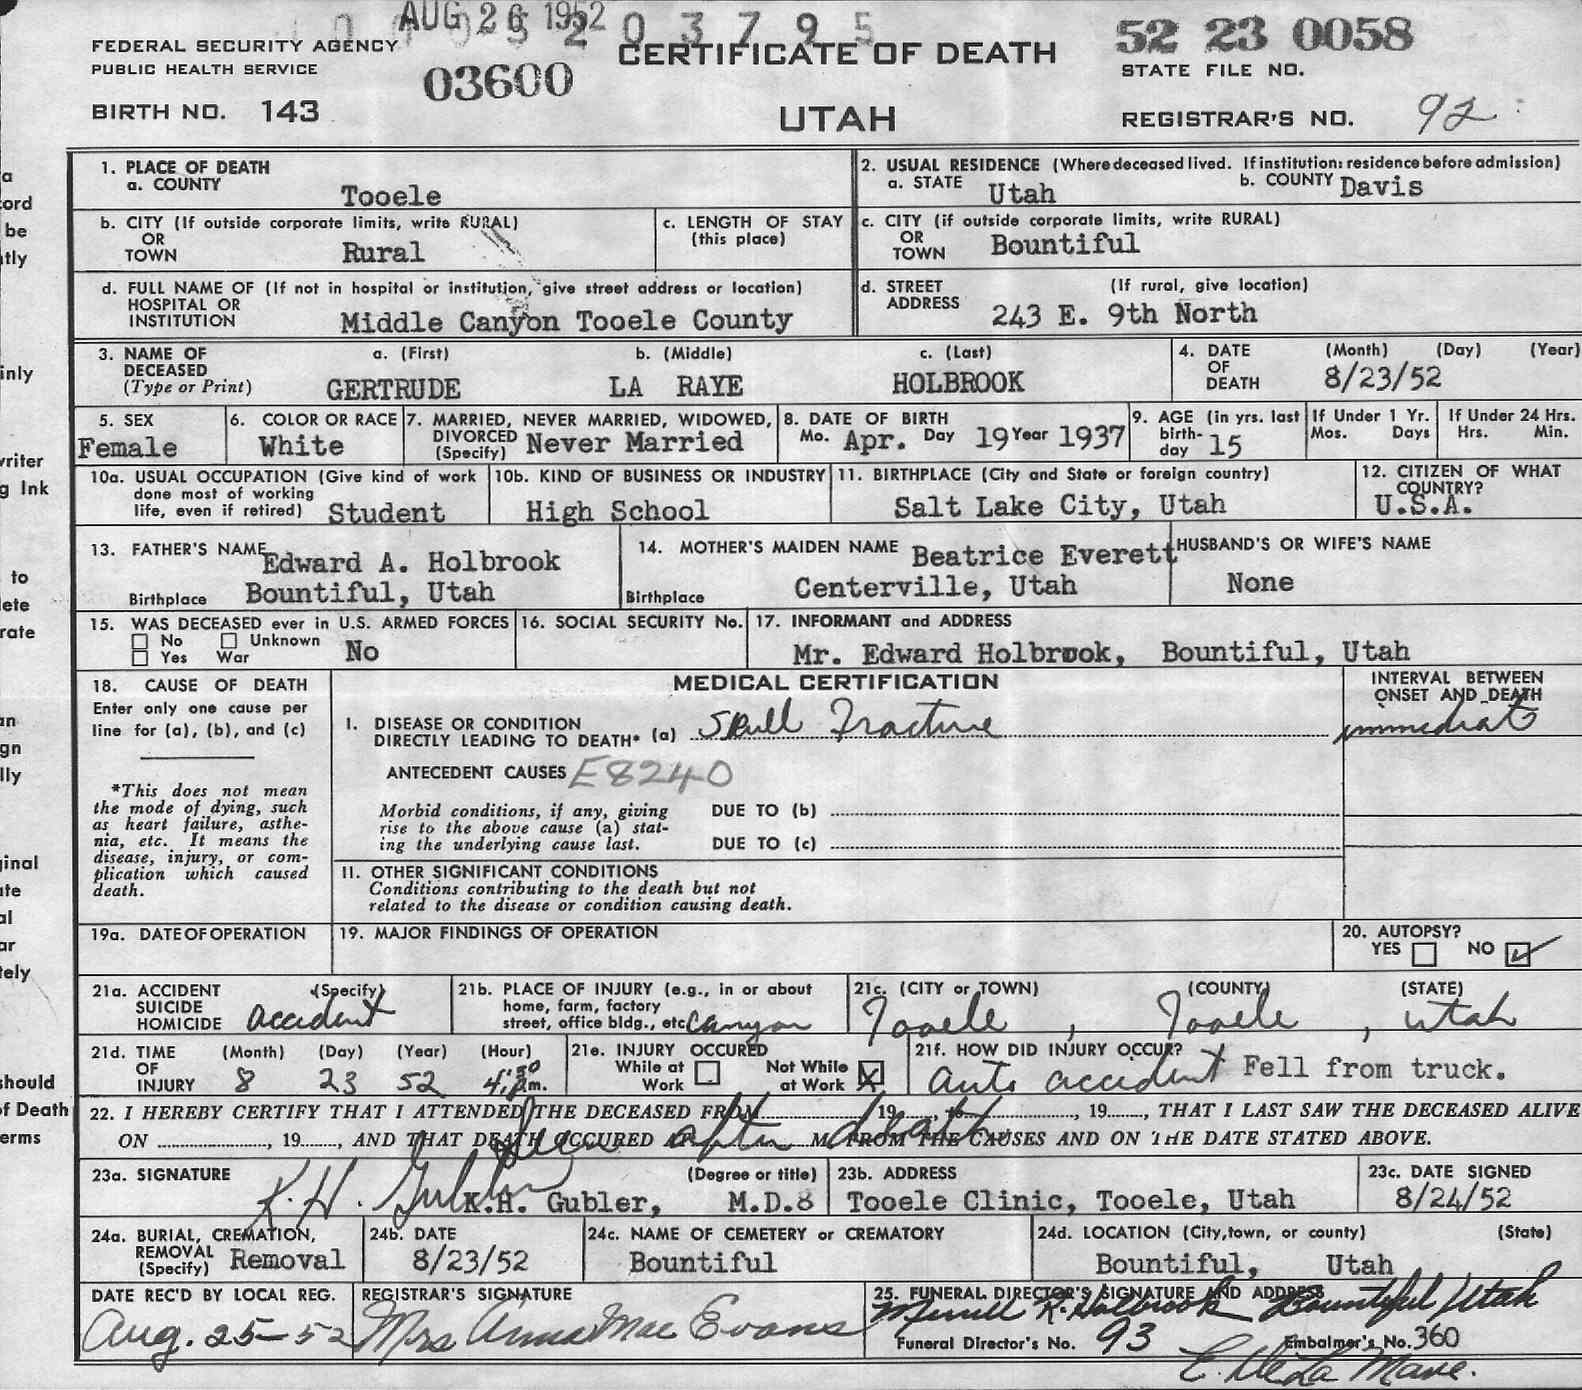 AUG 26 1952
FEDERAL SECURITY AGENCY
PUBLIC HEALTH SERVICE
BIRTH NO. 143
03600
CERTIFICATE OF DEATH
UTAH
52 23 0058
STATE FILE NO.
REGISTRAR'S NO. 92
1. PLACE OF DEATH
a. COUNTY Tooele
2. USUAL RESIDENCE (Where deceased lived. If institution: residence before admission)
a. STATE Utah b. COUNTY Davis
b. CITY (If outside corporate limits, write RURAL)
OR
TOWN Rural
c. LENGTH OF STAY
(this place)
c. CITY (if outside corporate limits, write RURAL)
OR
TOWN Bountiful
d. FULL NAME OF (If not in hospital or institution, give street address or location)
HOSPITAL OR
INSTITUTION Middle Canyon Tooele County
d. STREET (If rural, give location)
ADDRESS 243 E. 9th North
3. NAME OF
DECEASED
(Type or Print)
a. (First) b. (Middle) c. (Last)
GERTRUDE LA RAYE HOLBROOK
4. DATE (Month) (Day) (Year)
OF
DEATH 8/23/52
5. SEX
Female
6. COLOR OR RACE
White
7. MARRIED, NEVER MARRIED, WIDOWED,
DIVORCED
(Specify) Never Married
8. DATE OF BIRTH
Mo. Apr. Day 19 Year 1937
9. AGE (in yrs. last
birth-
day 15
If Under 1 Yr.
Mos. Days
If Under 24 Hrs.
Hrs. Min.
10a. USUAL OCCUPATION (Give kind of work
done most of working
life, even if retired) Student
10b. KIND OF BUSINESS OR INDUSTRY
High School
11. BIRTHPLACE (City and State or foreign country)
Salt Lake City, Utah
12. CITIZEN OF WHAT
COUNTRY?
U.S.A.
13. FATHER'S NAME Edward A. Holbrook
Birthplace Bountiful, Utah
14. MOTHER'S MAIDEN NAME Beatrice Everett
Birthplace Centerville, Utah
HUSBAND'S OR WIFE'S NAME
None
15. WAS DECEASED ever in U.S. ARMED FORCES
No Unknown
Yes War No
16. SOCIAL SECURITY No.
17. INFORMANT and ADDRESS
Mr. Edward Holbrook, Bountiful, Utah
18. CAUSE OF DEATH
Enter only one cause per
line for (a), (b), and (c)
*This does not mean
the mode of dying, such
as heart failure, asthe-
nia, etc. It means the
disease, injury, or com-
plication which caused
death.
MEDICAL CERTIFICATION
INTERVAL BETWEEN
ONSET AND DEATH
I. DISEASE OR CONDITION
DIRECTLY LEADING TO DEATH* (a) Skull Fracture immediate
ANTECEDENT CAUSES E8240
Morbid conditions, if any, giving
rise to the above cause (a) stat-
ing the underlying cause last.
DUE TO (b)
DUE TO (c)
11. OTHER SIGNIFICANT CONDITIONS
Conditions contributing to the death but not
related to the disease or condition causing death.
19a. DATE OF OPERATION
19. MAJOR FINDINGS OF OPERATION
20. AUTOPSY?
YES NO
21a. ACCIDENT (Specify)
SUICIDE
HOMICIDE accident
21b. PLACE OF INJURY (e.g., in or about
home, farm, factory
street, office bldg., etc Canyon
21c. (CITY or TOWN) (COUNTY) (STATE)
Tooele, Tooele, Utah
21d. TIME (Month) (Day) (Year) (Hour)
OF
INJURY 8 23 52 4:50 p.m.
21e. INJURY OCCURED
While at Not While
Work at Work
21f. HOW DID INJURY OCCUR?
Auto accident Fell from truck.
22. I HEREBY CERTIFY THAT I ATTENDED THE DECEASED FROM 19, to , 19, THAT I LAST SAW THE DECEASED ALIVE
ON , 19, AND THAT DEATH OCCURED AT M. FROM THE CAUSES AND ON THE DATE STATED ABOVE.
Seen after death
23a. SIGNATURE (Degree or title)
K. H. Gubler K.H. Gubler, M.D.
23b. ADDRESS
Tooele Clinic, Tooele, Utah
23c. DATE SIGNED
8/24/52
24a. BURIAL, CREMATION,
REMOVAL
(Specify) Removal
24b. DATE
8/23/52
24c. NAME OF CEMETERY or CREMATORY
Bountiful
24d. LOCATION (City, town, or county) (State)
Bountiful, Utah
DATE REC'D BY LOCAL REG.
Aug. 25-52
REGISTRAR'S SIGNATURE
Mrs Anna Mae Evans
25. FUNERAL DIRECTOR'S SIGNATURE AND ADDRESS
Merrill R. Holbrook Bountiful, Utah
Funeral Director's No. 93 Embalmer's No. 360